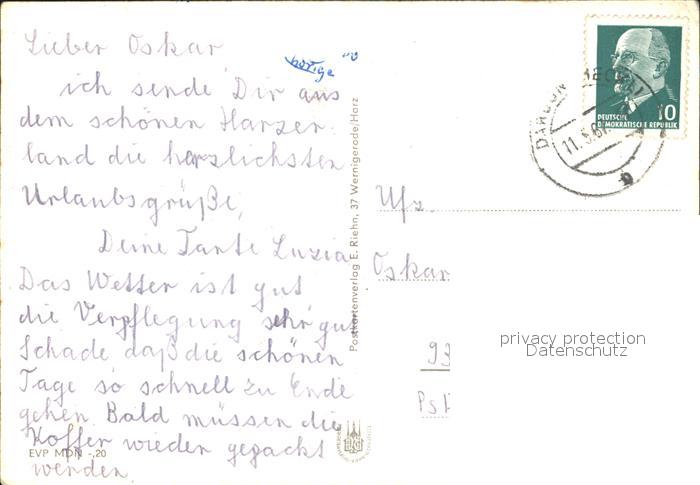 Lieber Oskar
ich sende Dir aus
dem schönen Harzer-
land die herzlichsten
Urlaubsgrüße,
Deine Tante Luzia
Das Wetter ist gut
die Verpflegung sehr gut
Schade daß die schönen
Tage so schnell zu Ende
gehen. Bald müssen die
Koffer wieder gepackt
werden.
EVP MDN -,20
Postkartenverlag E. Riehn, 37 Wernigerode/Harz
DEUTSCHE
DEMOKRATISCHE REPUBLIK
10
DARGUN
11.5.67
Ufz.
Oskar
99
Pst
privacy protection
Datenschutz